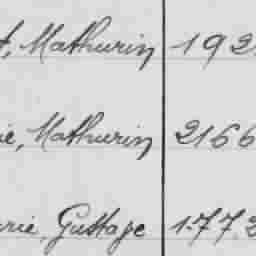 t, Mathurin 192
ie, Mathurin 2166
rie, Gustage 1772